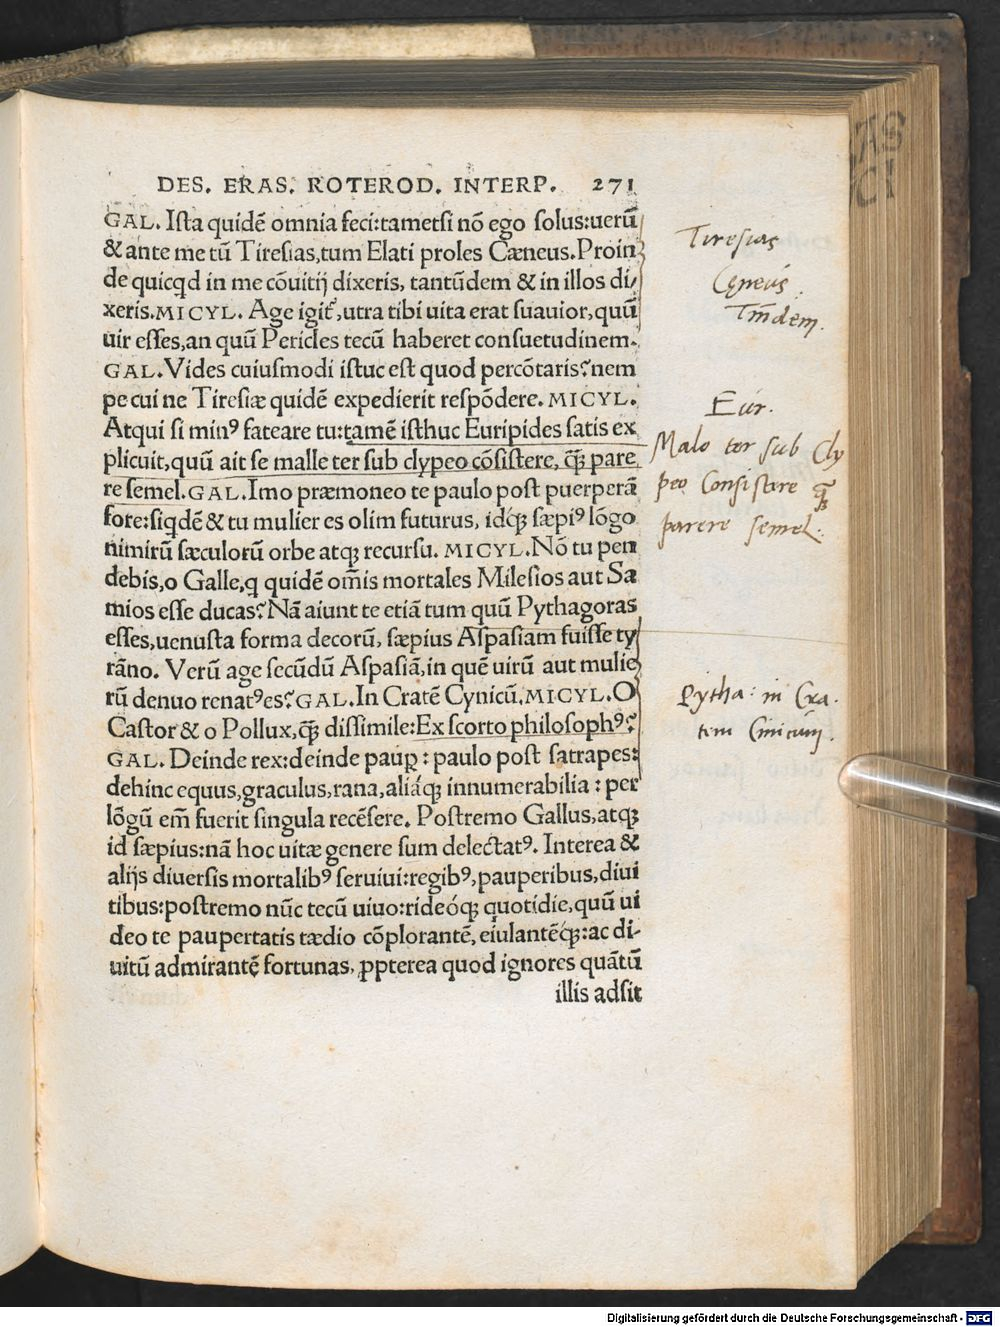 DES. ERAS. ROTEROD. INTERP. 271
GAL. Ista quidē omnia feci:tametsi nō ego solus:uerū
& ante me tū Tiresias,tum Elati proles Cæneus. Proin
de quicqd in me cōuitij dixeris, tantūdem & in illos di/
xeris. MICYL. Age igit,utra tibi uita erat suauior,quū
uir esses,an quū Pericles tecū haberet consuetudinem.
GAL. Vides cuiusmodi istuc est quod percōtaris? nem
pe cui ne Tiresiæ quidē expedierit respōdere. MICYL.
Atqui si minꝰ fateare tu:tamē isthuc Euripides satis ex
plicuit,quū ait se malle ter sub clypeo cōsistere, q̄ꝫ pare
re semel. GAL. Imo præmoneo te paulo post puerperā
fore:siqdē & tu mulier es olim futurus, idqꝫ sæpiꝰ lōgo
nimirū sæculorū orbe atqꝫ recursu. MICYL. Nō tu pen
debis,o Galle,q quidē om̄is mortales Milesios aut Sa
mios esse ducas? Nā aiunt te etiā tum quū Pythagoras
esses,uenusta forma decorū, sæpius Aspasiam fuisse ty
rāno. Verū age secūdū Aspasiā,in quē uirū aut mulie
rū denuo renatꝰ es? GAL. In Cratē Cynicū. MICYL. O
Castor & o Pollux,q̄ꝫ dissimile:Ex scorto philosophꝰ?
GAL. Deinde rex:deinde paup̱: paulo post satrapes:
dehinc equus,graculus,rana,aliáqꝫ innumerabilia: per
lōgū em̄ fuerit singula recēsere. Postremo Gallus,atqꝫ
id sæpius:nā hoc uitæ genere sum delectatꝰ. Interea &
alijs diuersis mortalibꝰ seruiui:regibꝰ,pauperibus,diui
tibus:postremo nūc tecū uiuo:rideóqꝫ quotidie,quū ui
deo te paupertatis tædio cōplorantē, eiulantēqꝫ:ac di/
uitū admirantē fortunas, ꝓpterea quod ignores quātū
illis adsit
Tiresias
Cęneus.
Tm̄dem.
Eur.
Malo ter sub Cly
peo Consistere q̄ꝫ
parere semel.
Pytha: in Cra.
tem Cinicum.
Digitalisierung gefördert durch die Deutsche Forschungsgemeinschaft - DFG